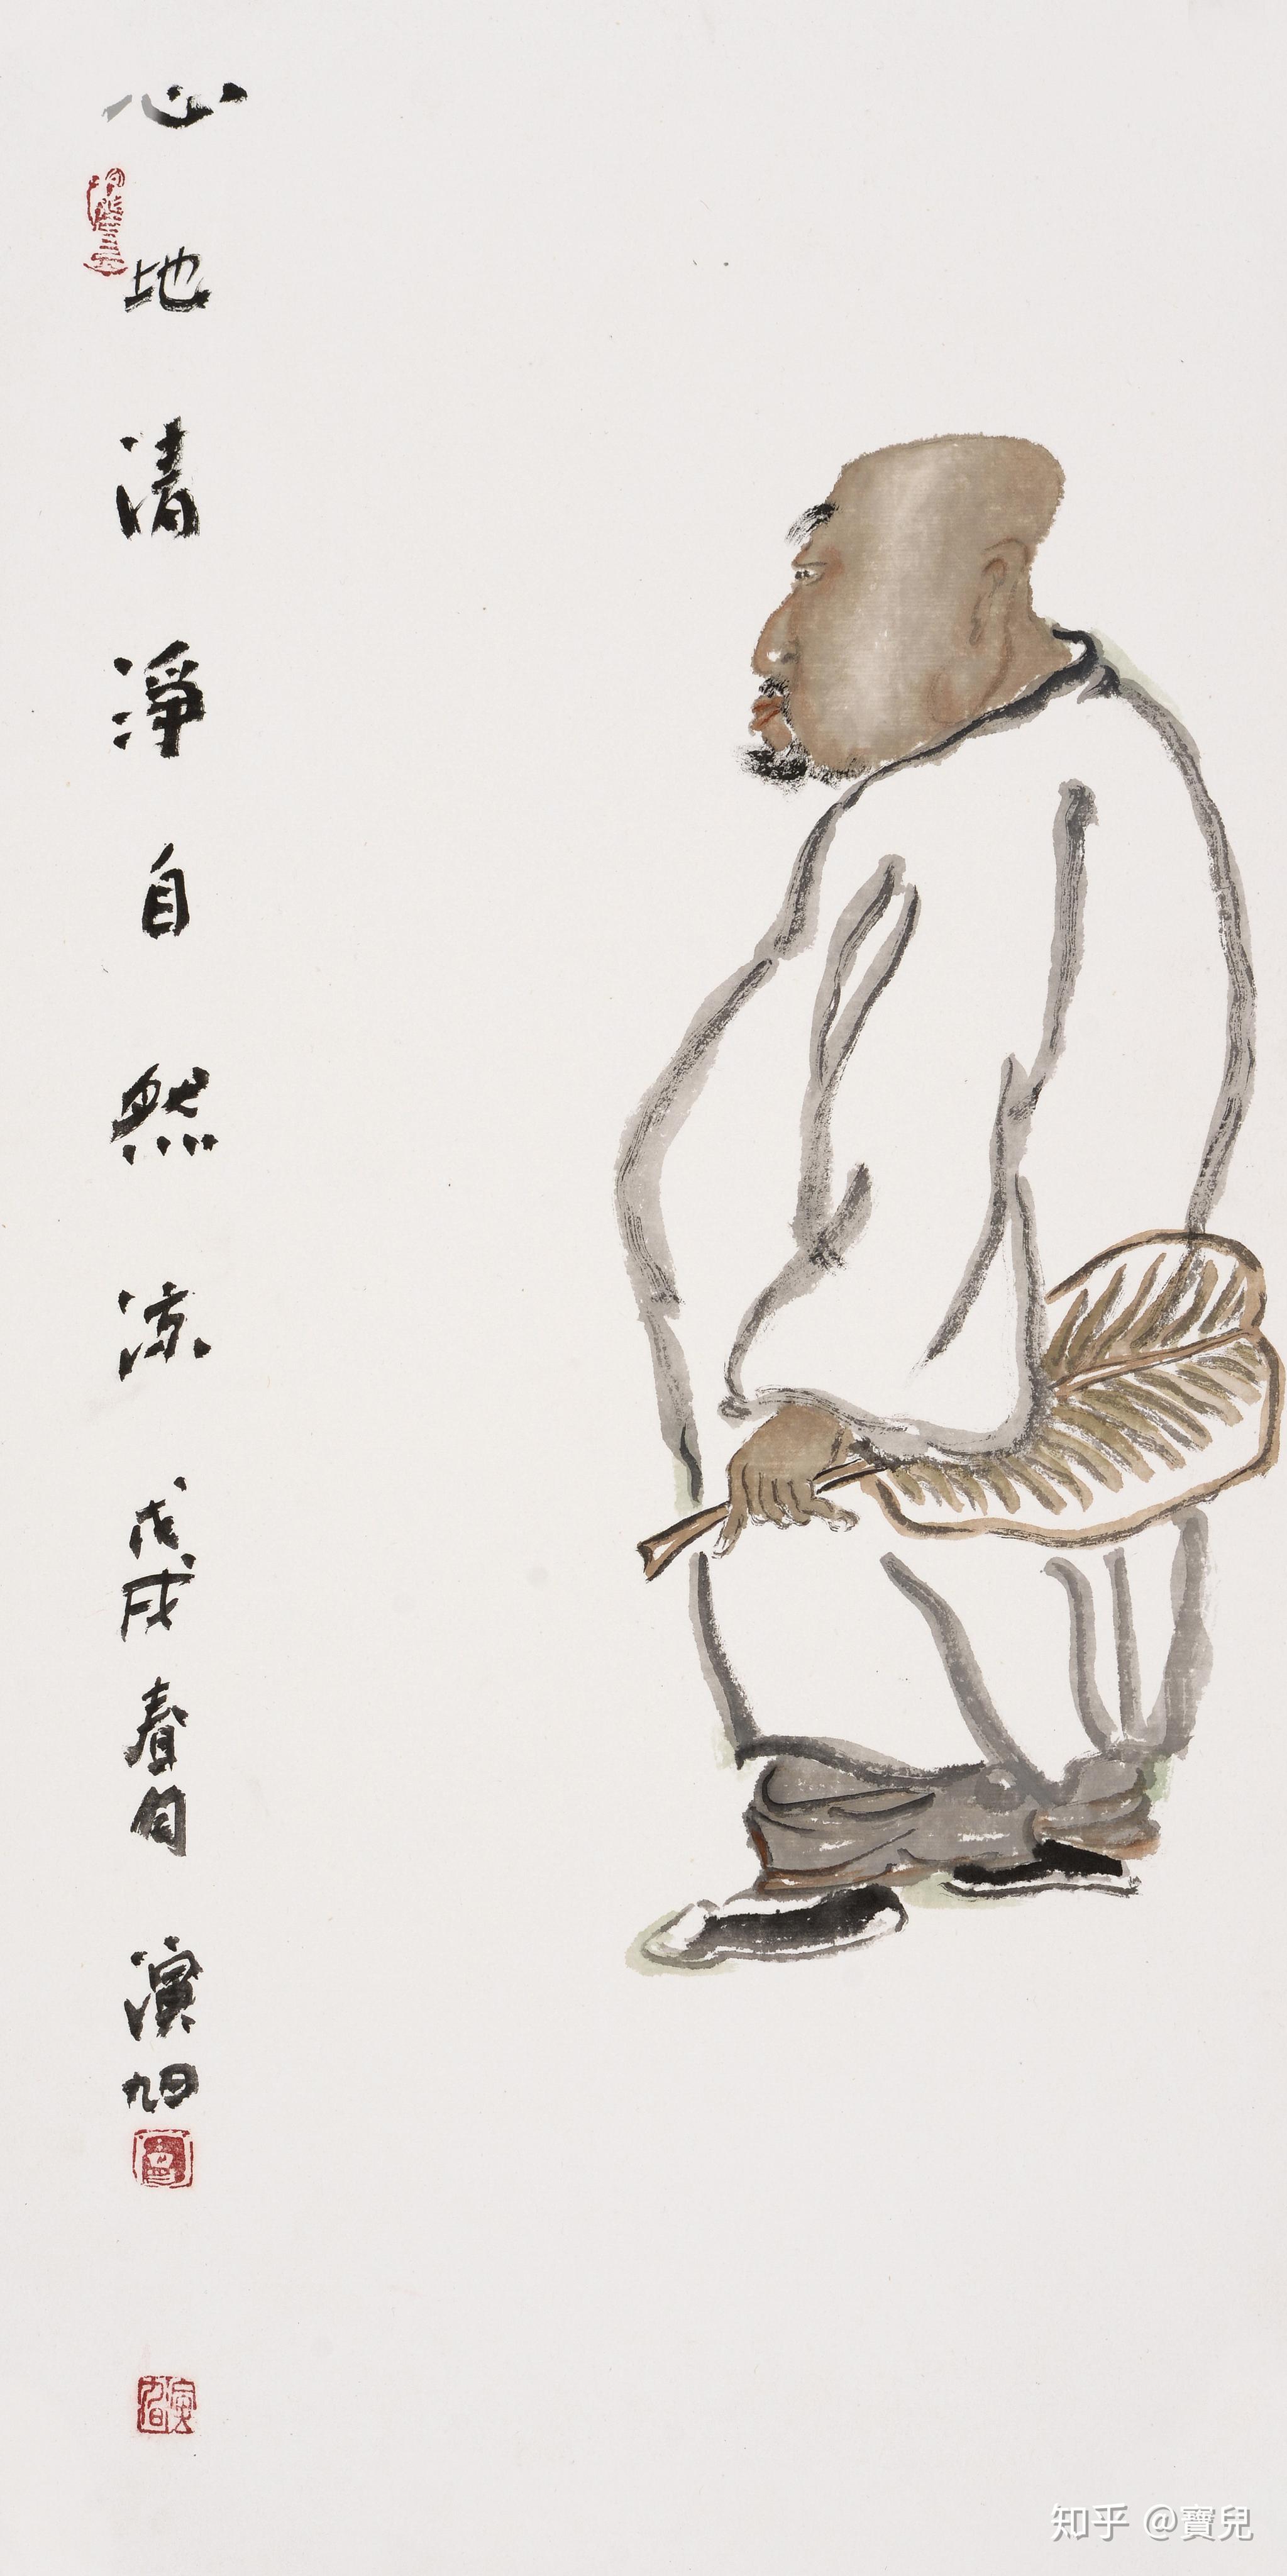 心地清淨自然凉
戊戌春月 演旭
知乎 @寶兒